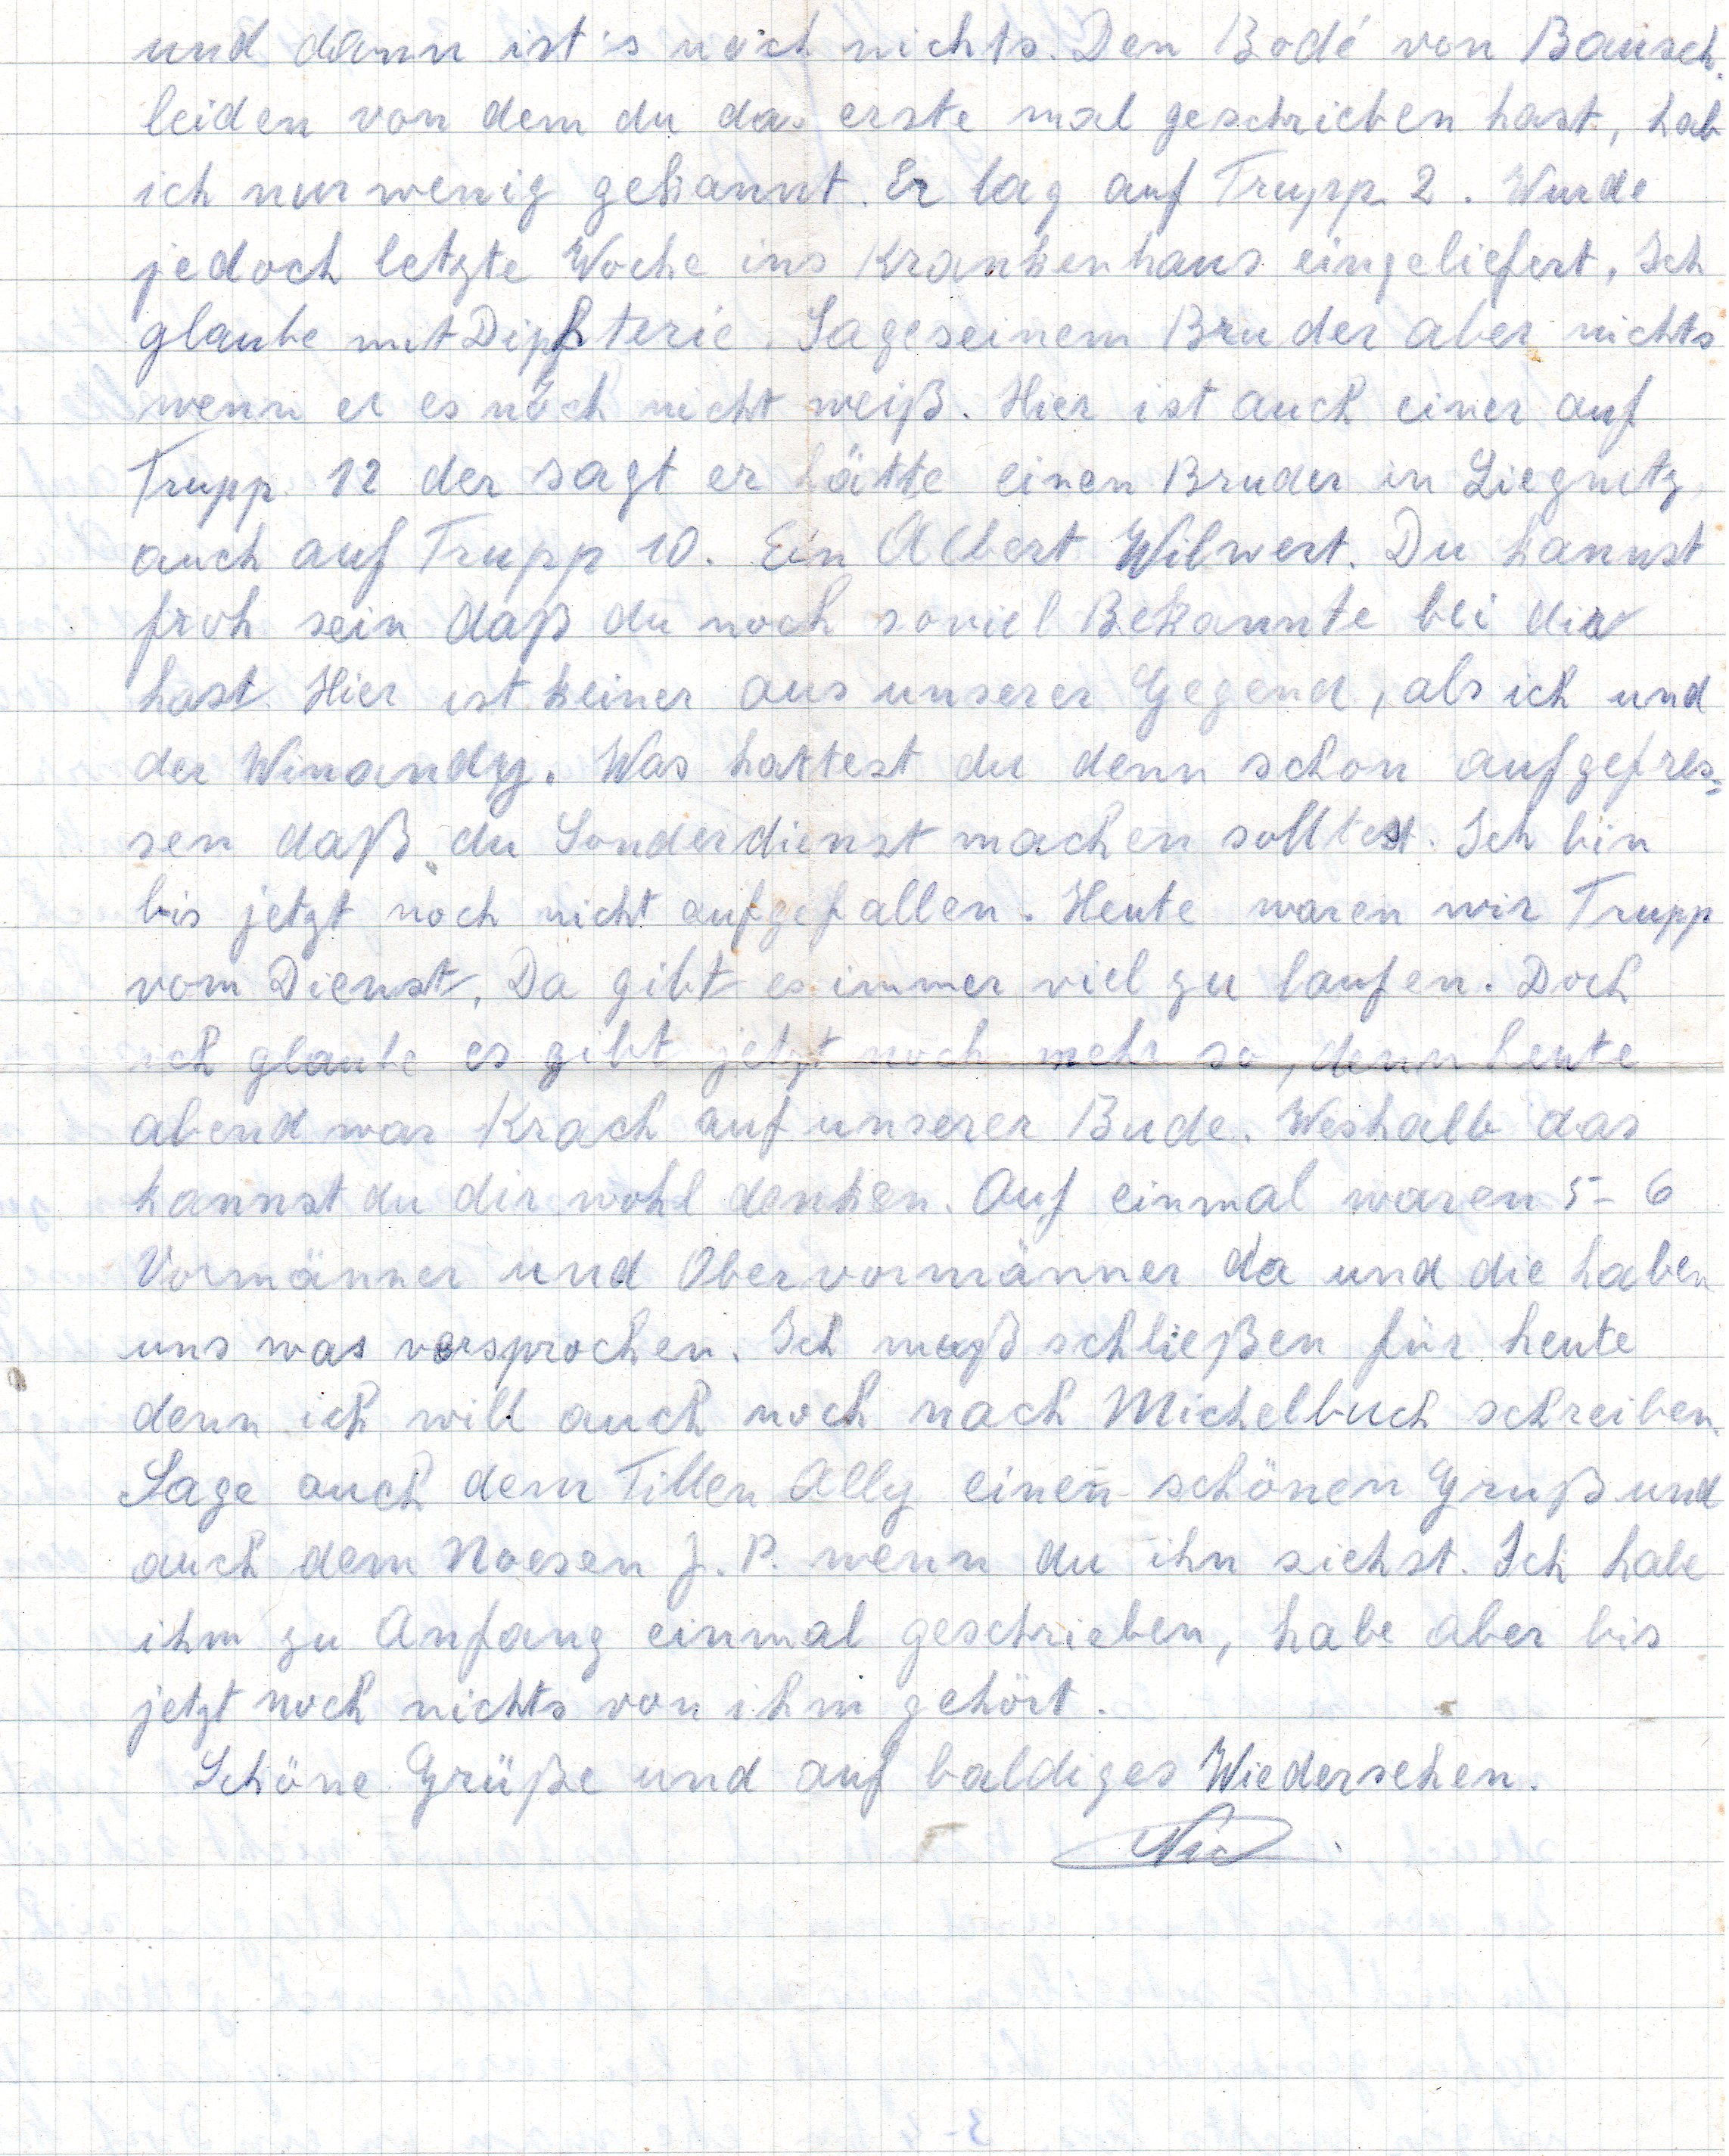 und dann ist's noch nichts. Den Bodé von Bausch-
leiden von dem du das erste mal geschrieben hast, hab
ich nur wenig gekannt. Er lag auf Trupp 2. Wurde
jedoch letzte Woche ins Krankenhaus eingeliefert. Ich
glaube mit Diphterie. Sage seinem Bruder aber nichts
wenn er es noch nicht weiß. Hier ist auch einer auf
Trupp 12 der sagt er hätte einen Bruder in Liegnitz
auch auf Trupp 10. Ein Albert Wilwert. Du kannst
froh sein daß du noch soviel Bekannte bei dir
hast. Hier ist keiner aus unserer Gegend, als ich und
der Winandy. Was hattest du denn schon aufgefres=
sen daß du Sonderdienst machen solltest. Ich bin
bis jetzt noch nicht aufgefallen. Heute waren wir Trupp
vom Dienst. Da gibt es immer viel zu laufen. Doch
ich glaube es gibt jetzt noch mehr so, denn heute
abend war Krach auf unserer Bude. Weshalb das
kannst du dir wohl denken. Auf einmal waren 5-6
Vormänner und Obervormänner da und die haben
uns was versprochen. Ich muß schließen für heute
denn ich will auch noch nach Michelbuch schreiben.
Sage auch dem Tillen Ally einen schönen Gruß und
auch dem Noesen J. P. wenn du ihn siehst. Ich habe
ihm zu Anfang einmal geschrieben, habe aber bis
jetzt noch nichts von ihm gehört.
Schöne Grüße und auf baldiges Wiedersehen.
Nic